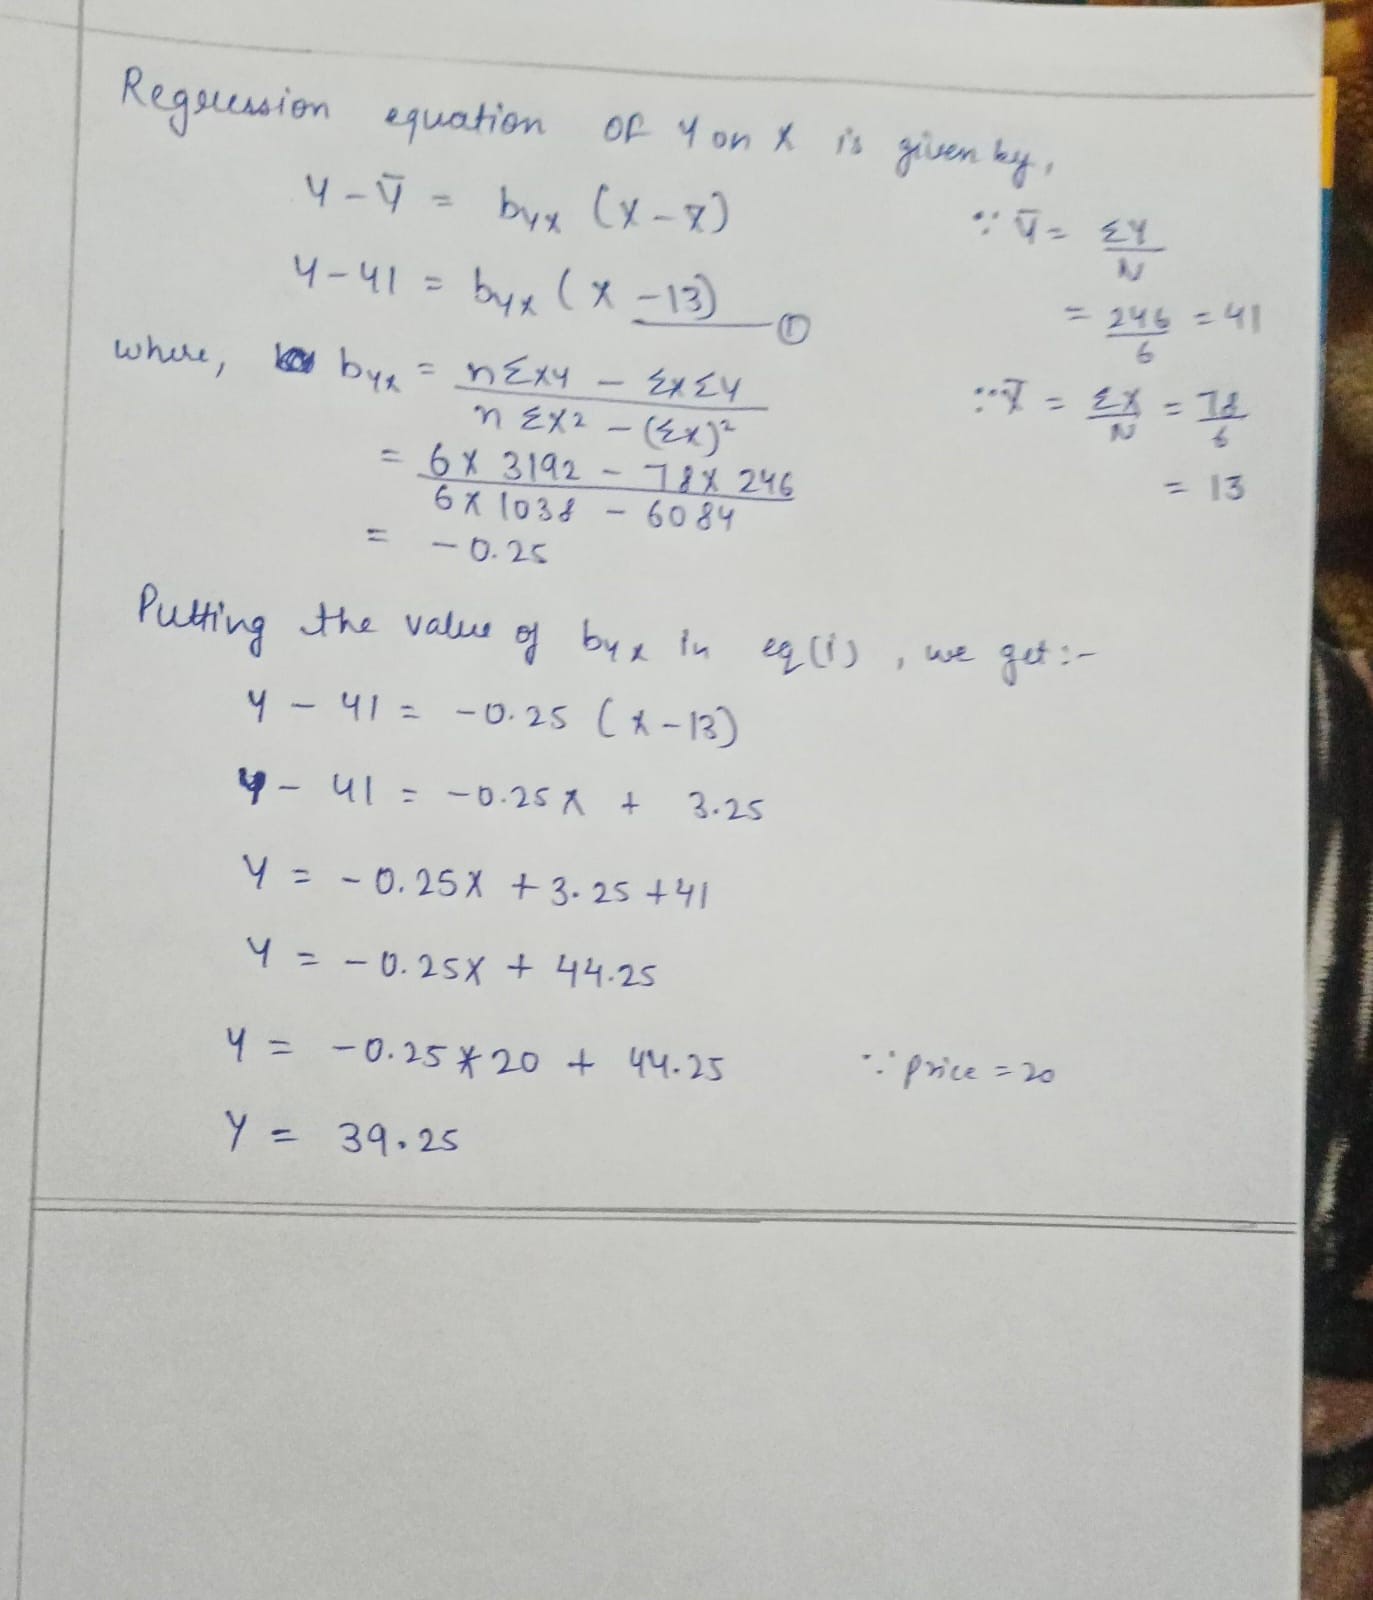 Regression equation of Y on X is given by,
Y - Ȳ = byx (X - X̄)
∵ Ȳ = ΣY/N
Y - 41 = byx (X - 13) ①
= 246/6 = 41
where, byx = nΣXY - ΣXΣY / nΣX2 - (ΣX)²
∵ X̄ = ΣX/N = 78/6
= 6 X 3192 - 78 X 246 / 6 X 1038 - 6084
= 13
= -0.25
Putting the value of byx in eq(i), we get :-
Y - 41 = -0.25 (X - 13)
Y - 41 = -0.25X + 3.25
Y = -0.25X + 3.25 + 41
Y = -0.25X + 44.25
Y = -0.25 * 20 + 44.25 ∵ price = 20
Y = 39.25